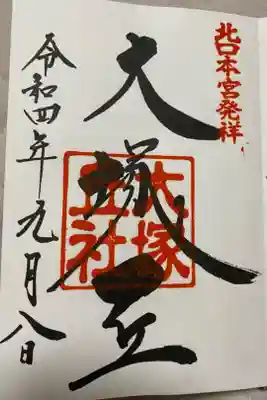 北口本宮発祥
大塚丘
大塚
丘社
令和四年九月八日